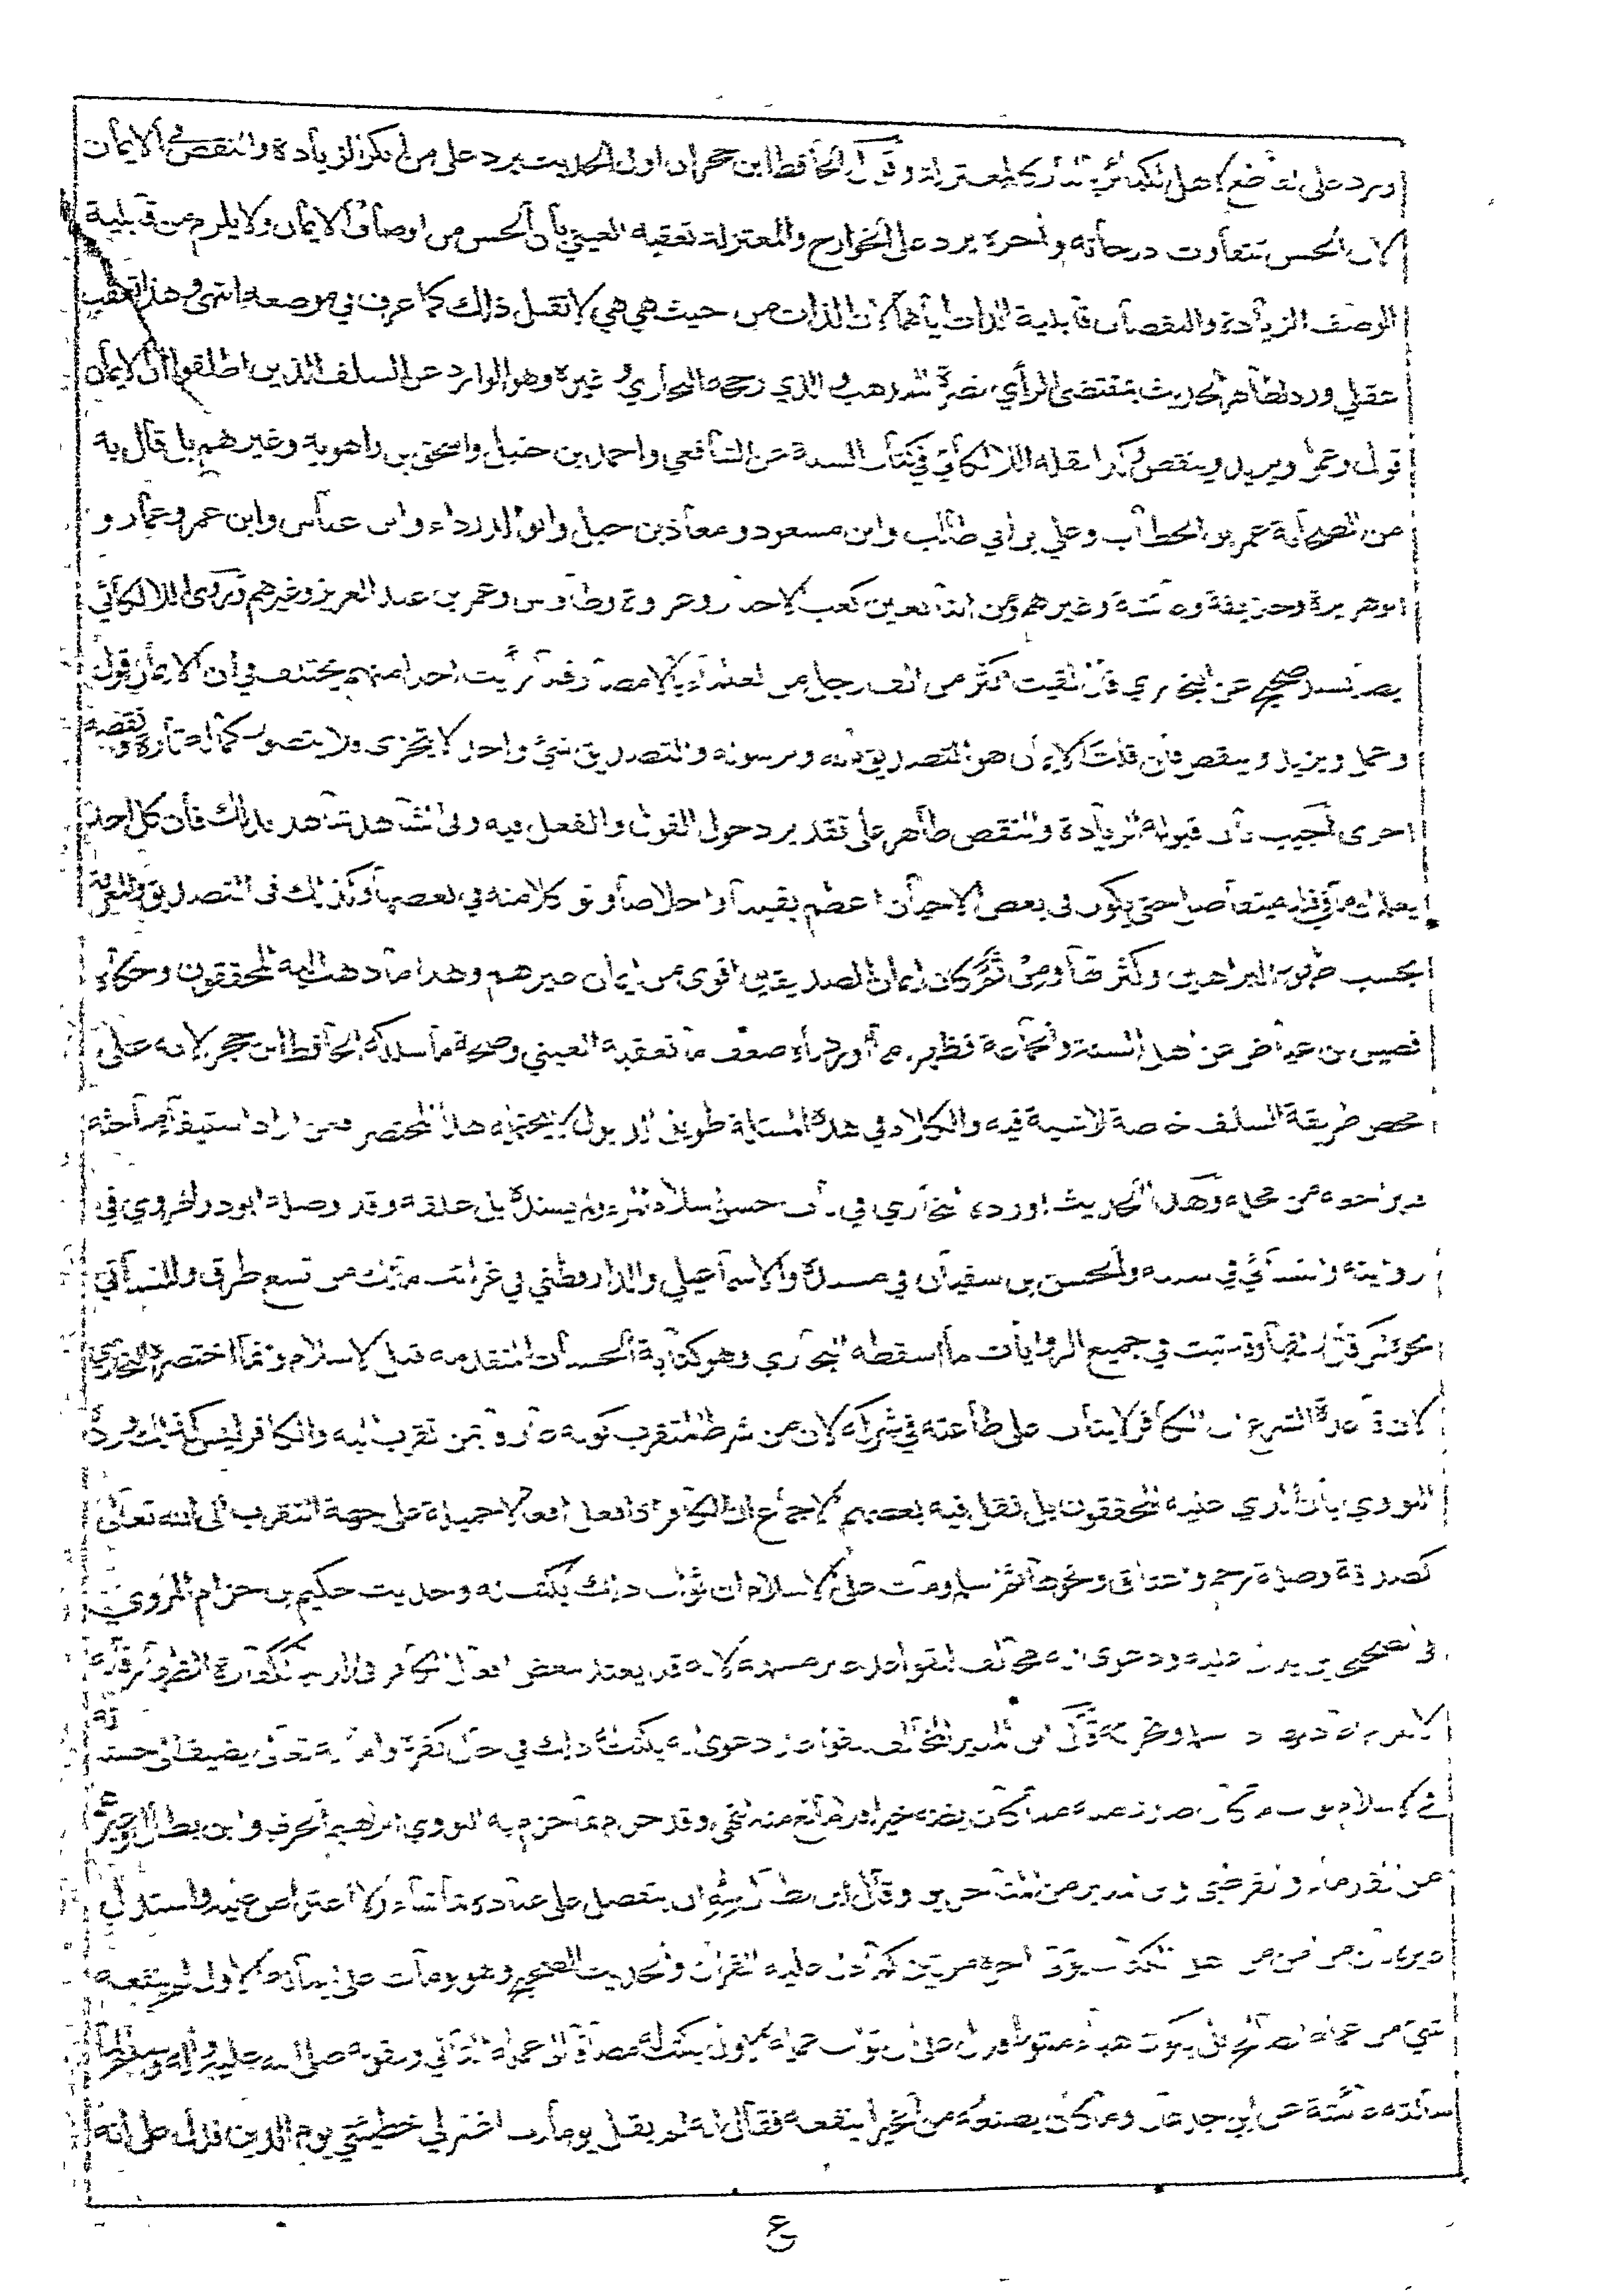 ويرد على القطع لاهل الكبائر بالنار كالمعتزلة وقول الحافظ ابن حجر ان اول الحديث يرد على من انكر الزيادة والنقص في الايمان
لان الحسن تتفاوت درجاته واخره يرد على الخوارج والمعتزلة تعقبه العيني بان الحسن من اوصاف الايمان ولا يلزم من قابلية
الوصف الزيادة والنقصان قابلية الذات اياهما لان الذات من حيث هي هي لا تقبل ذلك كما عرف في موضعه انتهى وهذا تعقب
عقلي ورد لظاهر الحديث بمقتضى الرأي نصرة لمذهبه والذي رجحه البخاري وغيره وهو الوارد عن السلف الذين اطلقوا ان الايمان
قول وعمل ويزيد وينقص كما نقله اللالكائي في كتاب السنة عن الشافعي واحمد بن حنبل واسحق بن راهوية وغيرهم بل قال به
من الصحابة عمر بن الخطاب وعلي بن ابي طالب وابن مسعود ومعاذ بن جبل وابو الدرداء وابن عباس وابن عمر وعمار و
ابو هريرة وحذيفة وعائشة وغيرهم ومن التابعين كعب الاحبار وعروة وطاوس وعمر بن عبد العزيز وغيرهم وروى اللالكائي
بسند صحيح عن البخاري قال لقيت اكثر من الف رجل من العلماء بالامصار فما رأيت احدا منهم يختلف في ان الايمان قول
وعمل ويزيد وينقص فان قلت الايمان هو التصديق بالله وبرسوله والتصديق شيء واحد لا يتجزى ولا يتصور كماله تارة ونقصه
اخرى اجيب بان قبوله الزيادة والنقص ظاهر على تقدير دخول القول والفعل فيه وفي الشاهد شاهد بذلك فان كل احد
يعلم ان ما في قلبه يتفاضل حتى يكون في بعض الاحيان اعظم يقينا واخلاصا وتوكلا منه في بعضها وكذلك في التصديق والمعرفة
بحسب ظهور البراهين وكثرتها ومن ثم كان ايمان الصديقين اقوى من ايمان غيرهم وهذا ما ذهب اليه المحققون وحكاه
فضيل بن عياض عن اهل السنة والجماعة فظهر بما اوردناه ضعف ما تعقبه العيني وصحة ما سلكه الحافظ ابن حجر لانه على
محض طريقة السلف خاصة لا شبهة فيه والكلام في هذه المسئلة طويل الذيول لا يحتمله هذا المختصر فمن اراد استيفاء مباحثه
فليأخذه من محله وهذا الحديث اورده البخاري في باب حسن اسلام المرء ولم يسنده بل علقه وقد وصله ابو ذر الهروي في
روايته والنسائي في سننه والحسن بن سفيان في مسنده والاسماعيلي والدارقطني في غرائب مالك من تسع طرق وللنسائي
نحوه لكن قال وقد ثبت في جميع الروايات ما اسقطه البخاري وهو كتابة الحسنات المتقدمة قبل الاسلام وانما اختصره البخاري
لان قاعدة الشرع ان الكافر لا يثاب على طاعته في شركه لان من شرط المتقرب كونه عارفا بمن تقرب اليه والكافر ليس كذلك ورده
النووي بان الذي عليه المحققون بل نقل فيه بعضهم الاجماع ان الكافر اذا فعل افعالا جميلة على جهة التقرب الى الله تعالى
كصدقة وصلة رحم واعتاق ونحوها ثم اسلم ومات على الاسلام ان ثواب ذلك يكتب له وحديث حكيم بن حزام المروي
في الصحيحين يدل عليه ودعوى انه مخالف للقواعد غير مسلمة لانه قد يعتد ببعض افعال الكافر في الدنيا ككفارة الظهار فانه
لا يلزمه اعادتها اذا اسلم وتجزيه قال ابن المنير المخالف للقواعد دعوى انه يكتب له ذلك في حال كفره واما ان الله تعالى يضيف الى حسناته
في الاسلام ثواب ما كان صدر منه مما كان يظنه خيرا فلا مانع منه انتهى وقد جزم بما جزم به النووي ابراهيم الحربي وابن بطال وغيره
من القدماء والقرطبي وابن المنير من المتأخرين وقال ابن بطال لله ان يتفضل على عباده بما شاء ولا اعتراض عليه واستدل
غيره بان من امن من اهل الكتاب يؤتى اجره مرتين كما دل عليه القران والحديث الصحيح وهو لو مات على ايمانه الاول لم ينفعه
شيء من عمله الصالح بل يكون هباء منثورا فدل على ان ثواب عمله الاول يكتب له مضافا الى عمله الثاني وبقوله صلى الله عليه واله وسلم لما
سألته عائشة عن ابن جدعان وما كان يصنعه من الخير اينفعه فقال انه لم يقل يوما رب اغفر لي خطيئتي يوم الدين فدل على انه
ع